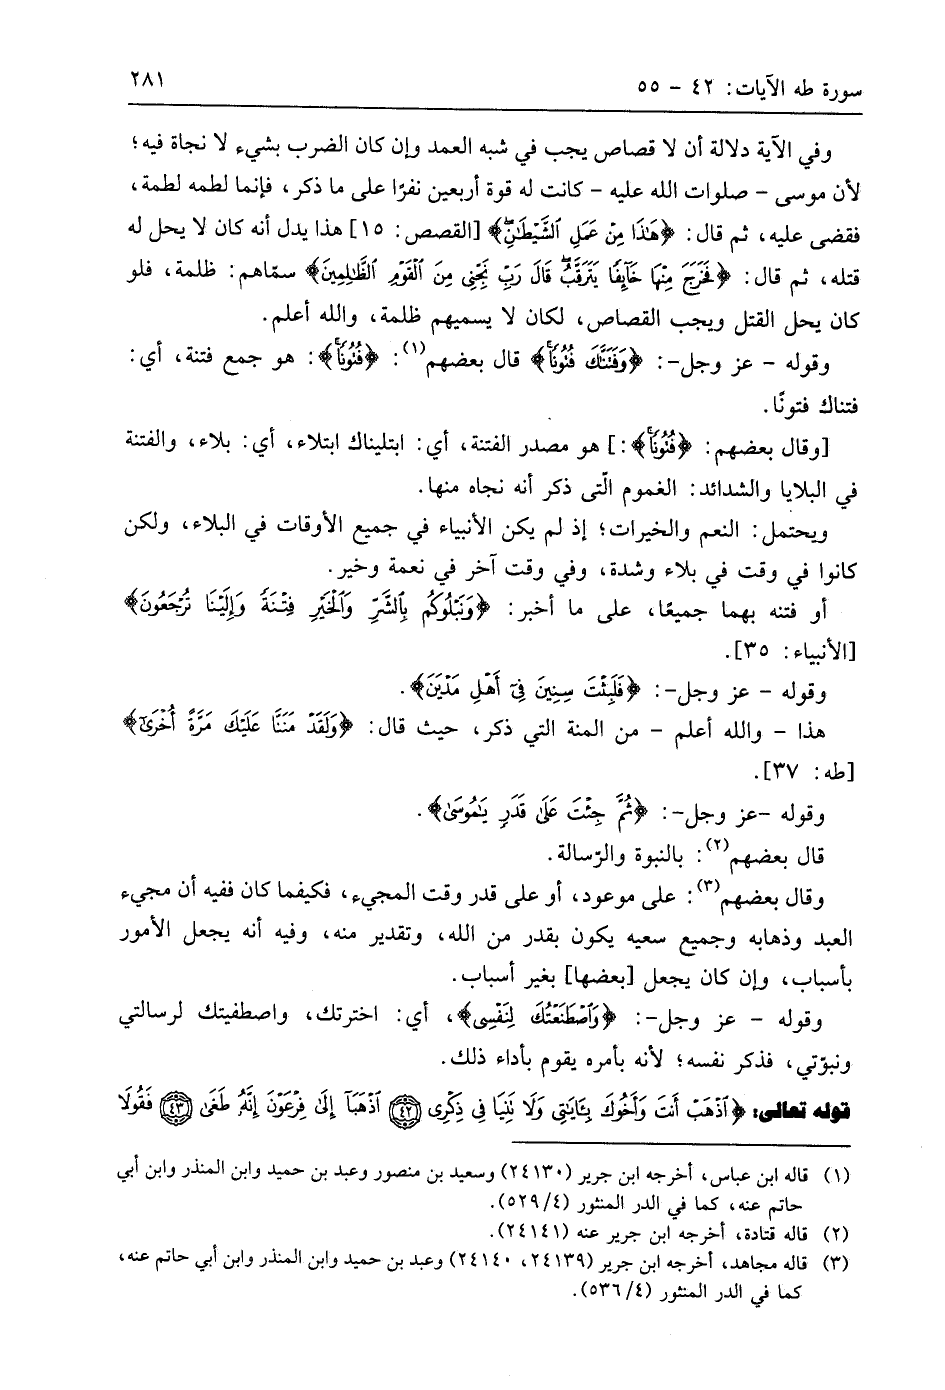 سورة طه الآيات: ٤٢ - ٥٥
٢٨١
وفي الآية دلالة أن لا قصاص يجب في شبه العمد وإن كان الضرب بشيء لا نجاة فيه؛
لأن موسى - صلوات الله عليه - كانت له قوة أربعين نفرًا على ما ذكر، فإنما لطمه لطمة،
فقضى عليه، ثم قال: ﴿هَٰذَا مِنْ عَمَلِ ٱلشَّيْطَٰنِۖ﴾ [القصص: ١٥] هذا يدل أنه كان لا يحل له
قتله، ثم قال: ﴿فَخَرَجَ مِنْهَا خَآئِفًا يَتَرَقَّبُۖ قَالَ رَبِّ نَجِّنِى مِنَ ٱلْقَوْمِ ٱلظَّٰلِمِينَ﴾ سمّاهم: ظلمة، فلو
كان يحل القتل ويجب القصاص، لكان لا يسميهم ظلمة، والله أعلم.
وقوله - عز وجل-: ﴿وَفَتَنَّٰكَ فُتُونًاۚ﴾ قال بعضهم(١): ﴿فُتُونًاۚ﴾: هو جمع فتنة، أي:
فتناك فتونًا.
[وقال بعضهم: ﴿فُتُونًاۚ﴾:] هو مصدر الفتنة، أي: ابتليناك ابتلاء، أي: بلاء، والفتنة
في البلايا والشدائد: الغموم الّتى ذكر أنه نجاه منها.
ويحتمل: النعم والخيرات؛ إذ لم يكن الأنبياء في جميع الأوقات في البلاء، ولكن
كانوا في وقت في بلاء وشدة، وفي وقت آخر في نعمة وخير.
أو فتنه بهما جميعًا، على ما أخبر: ﴿وَنَبْلُوكُم بِٱلشَّرِّ وَٱلْخَيْرِ فِتْنَةً وَإِلَيْنَا تُرْجَعُونَ﴾
[الأنبياء: ٣٥].
وقوله - عز وجل-: ﴿فَلَبِثْتَ سِنِينَ فِىٓ أَهْلِ مَدْيَنَ﴾.
هذا - والله أعلم - من المنة التي ذكر، حيث قال: ﴿وَلَقَدْ مَنَنَّا عَلَيْكَ مَرَّةً أُخْرَىٰٓ﴾
[طه: ٣٧].
وقوله -عز وجل-: ﴿ثُمَّ جِئْتَ عَلَىٰ قَدَرٍ يَٰمُوسَىٰ﴾.
قال بعضهم(٢): بالنبوة والرّسالة.
وقال بعضهم(٣): على موعود، أو على قدر وقت المجيء، فكيفما كان ففيه أن مجيء
العبد وذهابه وجميع سعيه يكون بقدر من الله، وتقدير منه، وفيه أنه يجعل الأمور
بأسباب، وإن كان يجعل [بعضها] بغير أسباب.
وقوله - عز وجل-: ﴿وَٱصْطَنَعْتُكَ لِنَفْسِى﴾، أي: اخترتك، واصطفيتك لرسالتي
ونبوّتي، فذكر نفسه؛ لأنه بأمره يقوم بأداء ذلك.
قوله تعالى: ﴿ٱذْهَبْ أَنتَ وَأَخُوكَ بِـَٔايَٰتِى وَلَا تَنِيَا فِى ذِكْرِى ٤٢ ٱذْهَبَآ إِلَىٰ فِرْعَوْنَ إِنَّهُۥ طَغَىٰ ٤٣ فَقُولَا
(١) قاله ابن عباس، أخرجه ابن جرير (٢٤١٣٠) وسعيد بن منصور وعبد بن حميد وابن المنذر وابن أبي
حاتم عنه، كما في الدر المنثور (٥٢٩/٤).
(٢) قاله قتادة، أخرجه ابن جرير عنه (٢٤١٤١).
(٣) قاله مجاهد، أخرجه ابن جرير (٢٤١٣٩، ٢٤١٤٠) وعبد بن حميد وابن المنذر وابن أبي حاتم عنه،
كما في الدر المنثور (٥٣٦/٤).